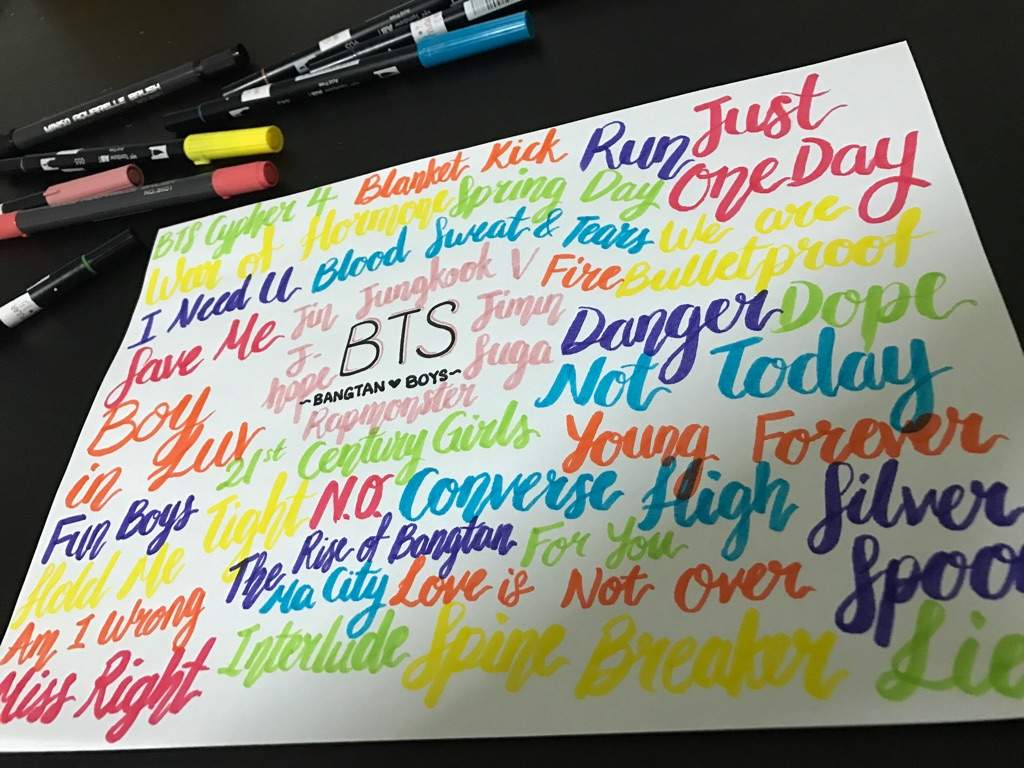 Blanket Kick
Run
Just
One Day
BTS Cypher 4
War of Hormone
Spring Day
We are
Bulletproof
I Need U
Blood Sweat & Tears
Fire
Save Me
Jin Jungkook V
Jimin
J-
hope
Suga
Rapmonster
BTS
~BANGTAN ♥ BOYS~
Danger
Dope
Not Today
Boy
in Luv
21st Century Girls
Young Forever
Fun Boys
Hold Me Tight
N.O.
Converse High
Silver
Spoo
The Rise of Bangtan
For You
Am I Wrong
Ma City
Love is Not Over
Miss Right
Interlude
Spine Breaker
Lie